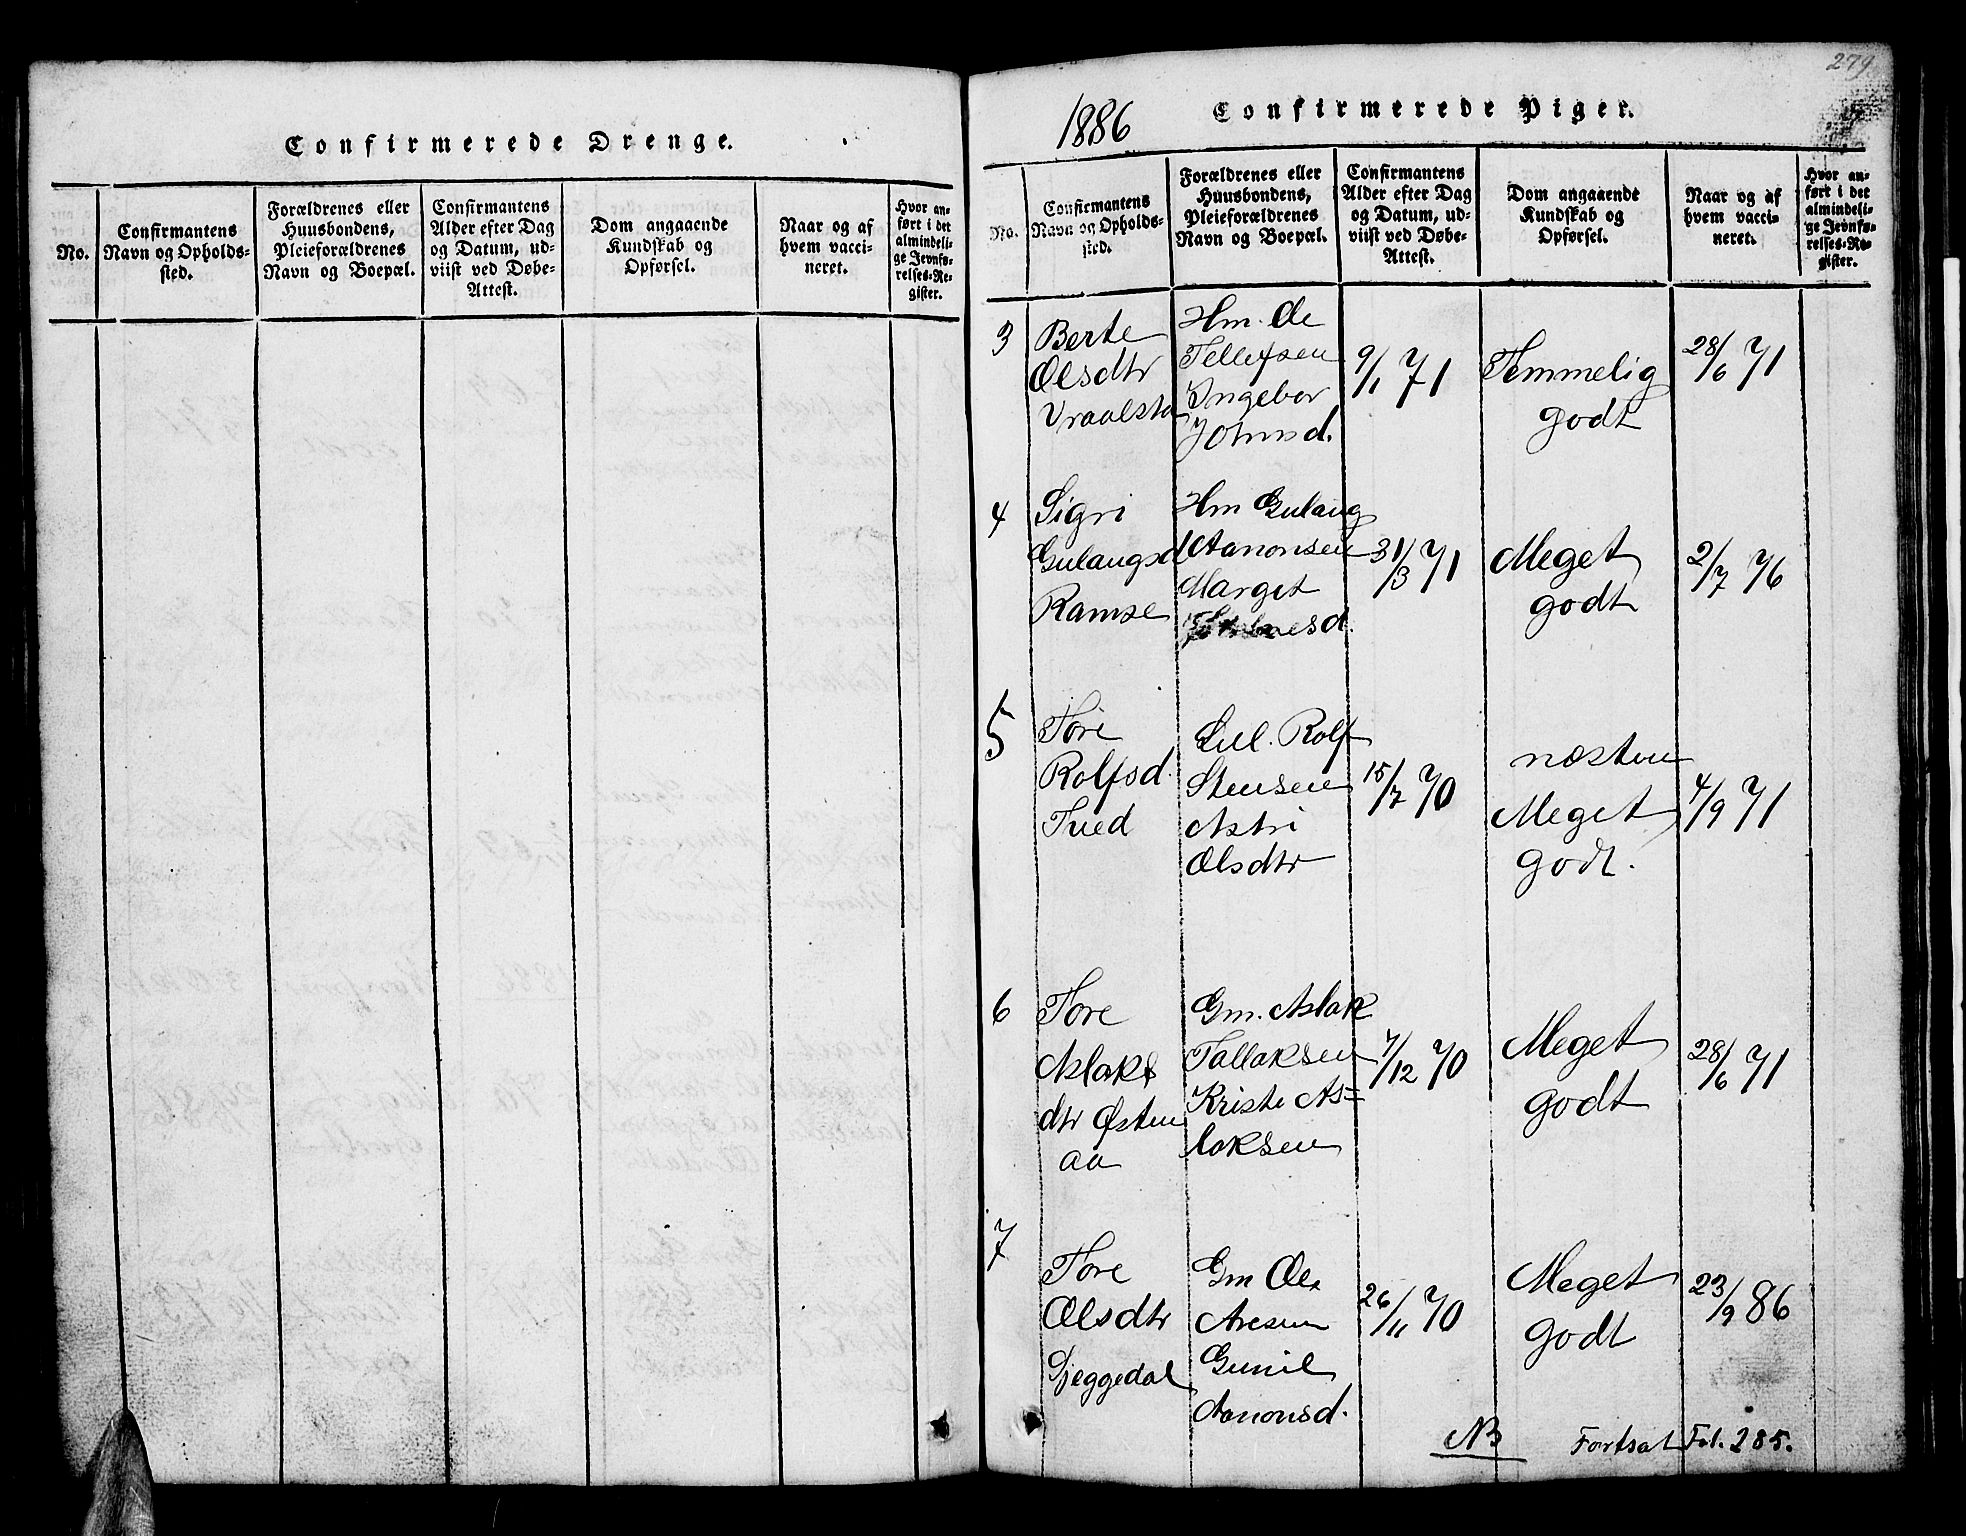 279
Confirmerede Drenge.
No.
Confirmantens
Navn og Opholds-
sted.
Forældrenes eller
Huusbondens,
Pleieforældrenes
Navn og Boepæl.
Confirmantens
Alder efter Dag
og Datum, ud-
viist ved Døbe-
Attest.
Dom angaaende
Kundskab og
Opførsel.
Naar og af
hvem vacci-
neret.
Hvor an-
ført i det
almindeli-
ge Jevnfø-
relses-Re-
gister.
1886
Confirmerede Piger.
No.
Confirmantens
Navn og Opholds-
sted.
Forældrenes eller
Huusbondens,
Pleieforældrenes
Navn og Boepæl.
Confirmantens
Alder efter Dag
og Datum, ud-
viist ved Døbe-
Attest.
Dom angaaende
Kundskab og
Opførsel.
Naar og af
hvem vacci-
neret.
Hvor an-
ført i det
almindeli-
ge Jevnfø-
relses-Re-
gister.
3
Berte
Olsdtr
Vraalsta
Hm. Ole
Tellefsen
Ingebor
Johnsd.
9/1 71
Temmelig
godt
28/6 71
4
Sigri
Gulaugsd
Ramse
Hm Gulaug
Aanonsen
Marget
31/3 71
Meget
godt
2/7 76
5
Tore
Rolfsd.
Tved
Lul. Rolf
Stensen
Astri
Olsdtr
15/7 70
næsten
Meget
godt.
4/9 71
6
Tore
Aslaks
dtr Østen
aa
Gm. Aslak
Tallaksen
Kriste As=
laksen
7/12 70
Meget
godt
28/6 71
7
Tore
Olsdtr
Gjeggedal
Gm Ole
Aresen
Gunil
Aanonsd.
26/11 70
Meget
godt
23/9 86
NB Fortsat Fol. 285.